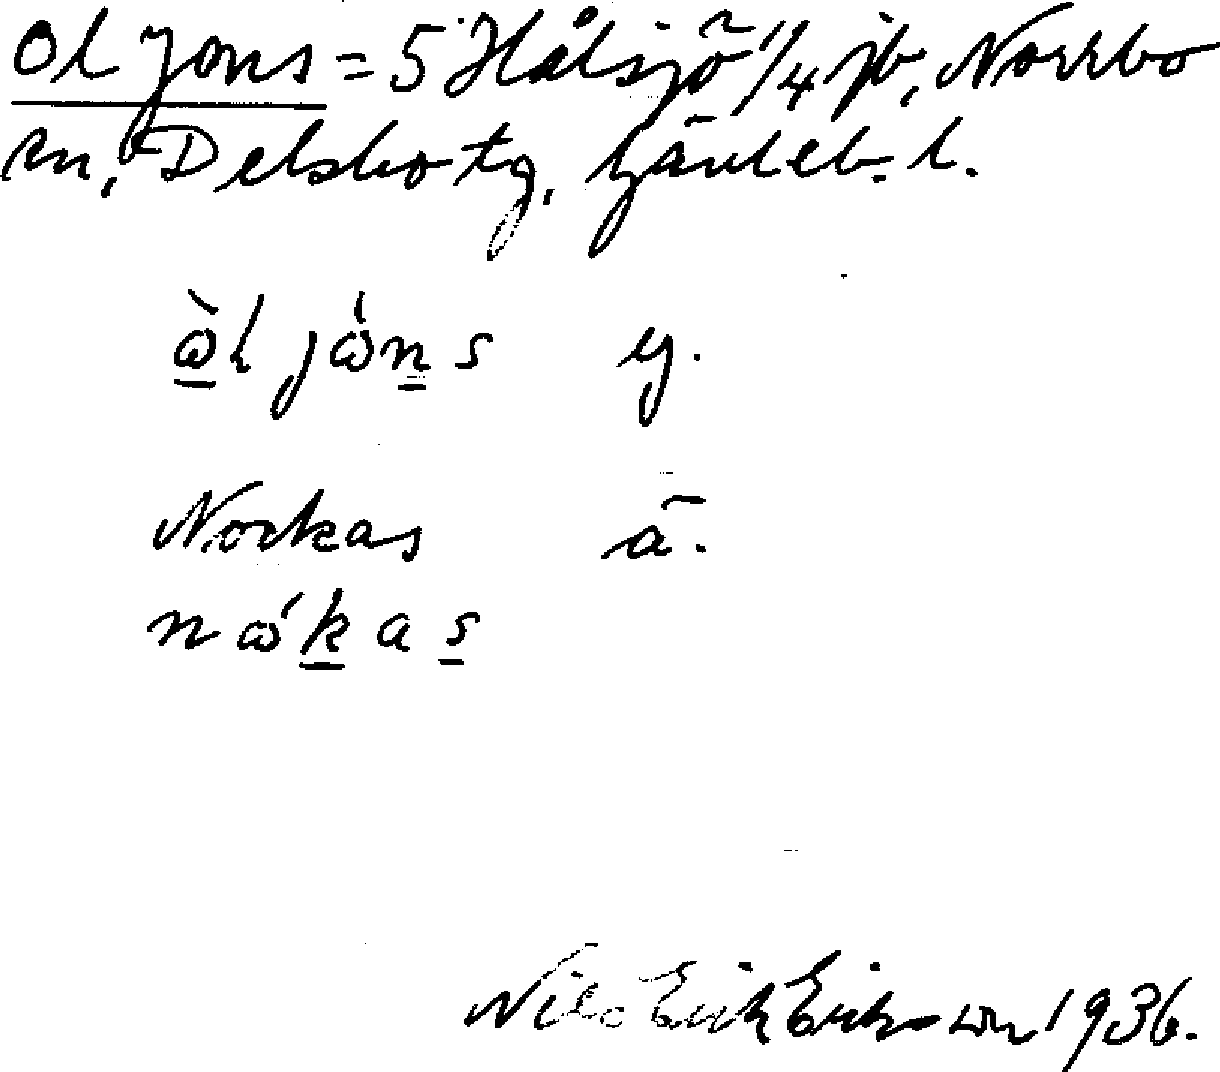 Ol Jons = 5 Hålsjö 1/4 jb, Norrbo
sn, Delsbo tg, Gävleb. l.
ὼl jώn s y.
Norkas ä.
n ώ k a s
Nils Erik Erikson 1936.